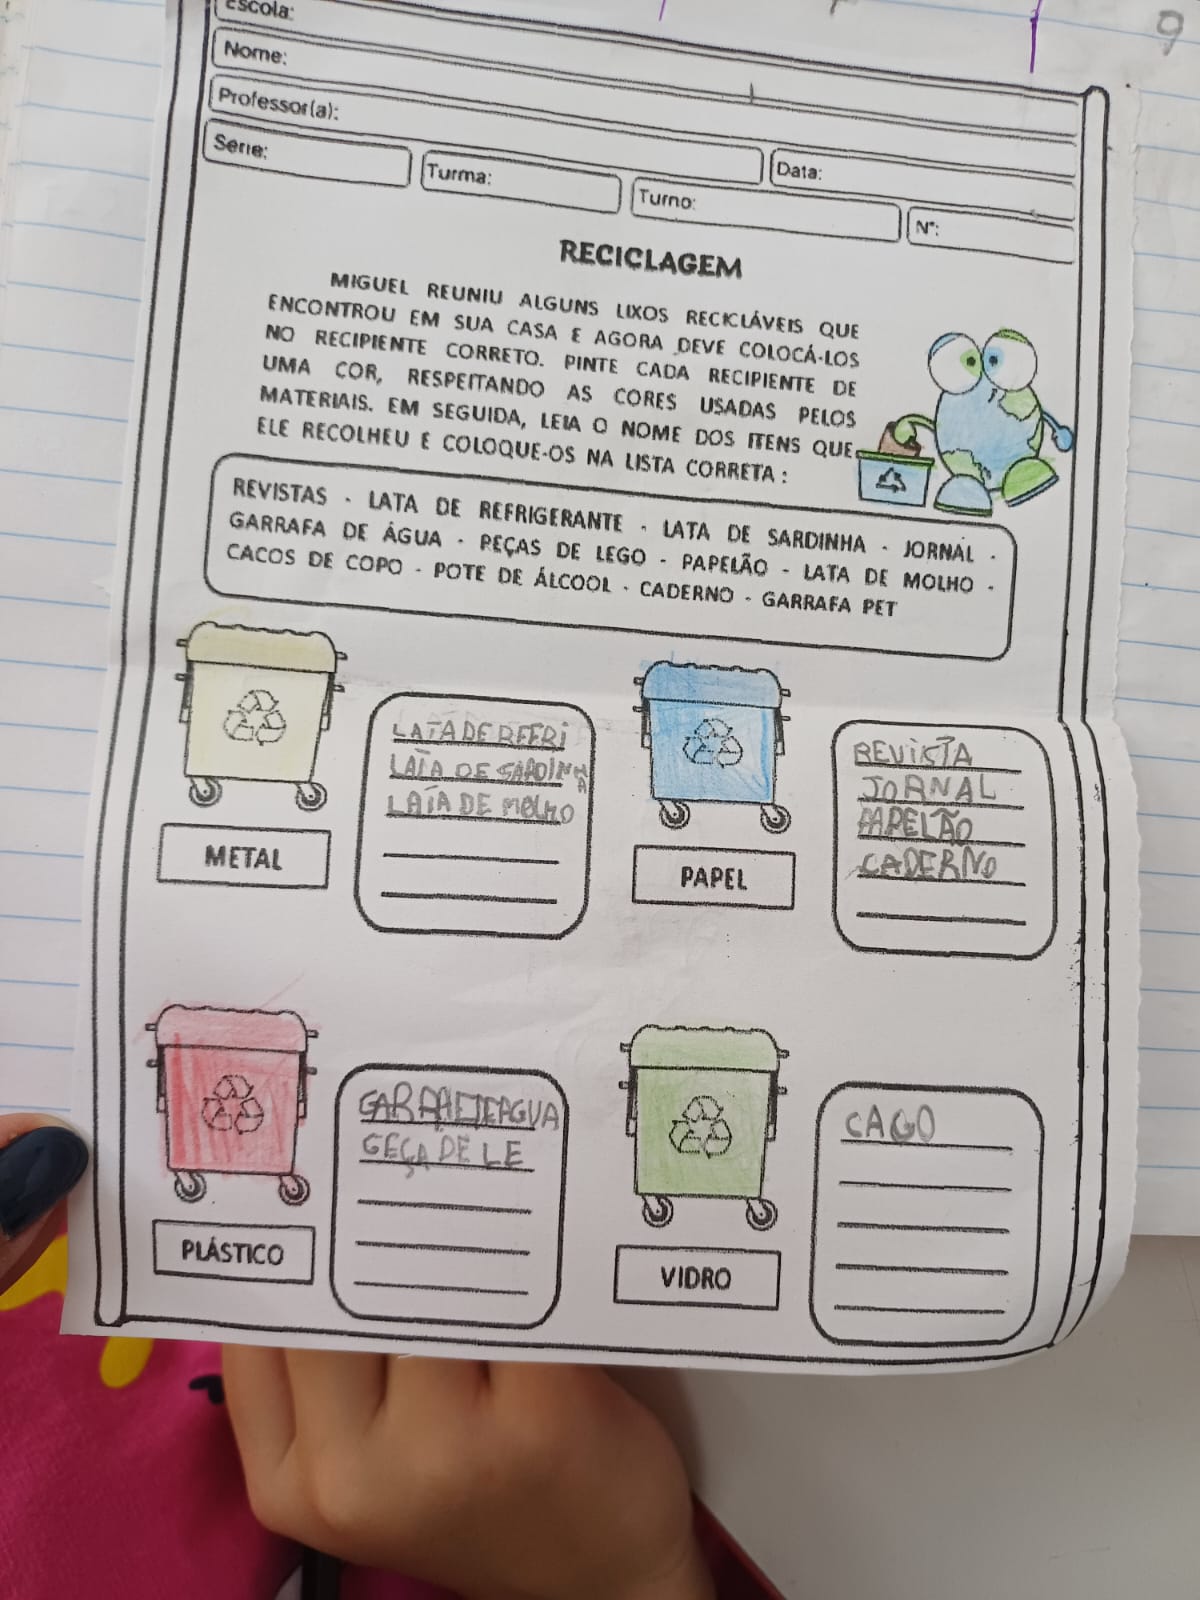 9
Escola:
Nome:
Professor(a):
Data:
Série:
Turma:
Turno:
N°:
RECICLAGEM
MIGUEL REUNIU ALGUNS LIXOS RECICLÁVEIS QUE
ENCONTROU EM SUA CASA E AGORA DEVE COLOCÁ-LOS
NO RECIPIENTE CORRETO. PINTE CADA RECIPIENTE DE
UMA COR, RESPEITANDO AS CORES USADAS PELOS
MATERIAIS. EM SEGUIDA, LEIA O NOME DOS ITENS QUE
ELE RECOLHEU E COLOQUE-OS NA LISTA CORRETA :
REVISTAS - LATA DE REFRIGERANTE - LATA DE SARDINHA - JORNAL -
GARRAFA DE ÁGUA - PEÇAS DE LEGO - PAPELÃO - LATA DE MOLHO -
CACOS DE COPO - POTE DE ÁLCOOL - CADERNO - GARRAFA PET
METAL
LATA DE REFRI
LATA DE SARDINHA
LATA DE MOLHO
PAPEL
REVISTA
JORNAL
PAPELÃO
CADERNO
PLÁSTICO
GEÇA DE LE
VIDRO
CAGO